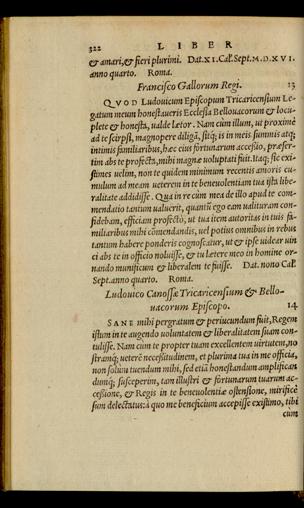 322 LIBER
& amari, & fieri plurimi. Dat. XI. Cal. Sept. M.D.XVI.
anno quarto. Roma.
Francisco Gallorum Regi. 13
QVOD Ludouicum Episcopum Tricaricensium Le-
gatum meum honestaueris Ecclesia Bellouacorum & locu-
plete & honesta, ualde lætor. Nam cùm illum, ut proximè
ad te scripsi, magnopere diligā, sitq; is in meis summis atq;
intimis familiaribus, hæc eius fortunarum accessio, præser-
tim abs te profecta, mihi magnæ uoluptati fuit. Itaq; sic exi-
stimes uelim, non te quidem minimum recentis amoris cu-
mulum ad meam ueterem in te beneuolentiam tua ista libe-
ralitate addidisse. Qua in re cùm mea de illo apud te com-
mendatio tantum ualuerit, quantū ego eam ualituram con-
fidebam, efficiam profectò, ut tua item autoritas in tuis fa-
miliaribus mihi cōmendandis, uel potius omnibus in rebus
tantum habere ponderis cognoscatur, ut & ipse uidear uin
ci abs te in officio noluisse, & tu lætere meo in homine or-
nando munificum & liberalem te fuisse. Dat. nono Cal.
Sept. anno quarto. Roma.
Ludouico Canossæ Tricaricensium & Bello-
uacorum Episcopo. 14
SANE mihi pergratum & periucundum fuit, Regem
istum in te augendo uoluntatem & liberalitatem suam con-
tulisse. Nam cùm te propter tuam excellentem uirtutem, no
stramq; ueterē necessitudinem, et plurima tua in me officia,
non solùm tuendum mihi, sed etiā honestandum amplifican
dumq; susceperim, tam illustri & fortunarum tuarum ac-
cessione, & Regis in te beneuolentiæ ostensione, mirificè
sum delectatus: à quo me beneficium accepisse existimo, tibi
cum